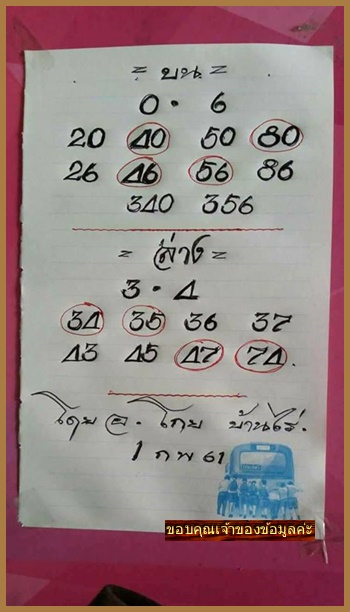 = บน =
0 . 6
20 40 50 80
26 46 56 86
340 356
= ล่าง =
3 . 4
34 35 36 37
43 45 47 74 .
โดย อ . โกย บ้านไร่ .
1 ก พ 61
ขอบคุณเจ้าของข้อมูลค่ะ